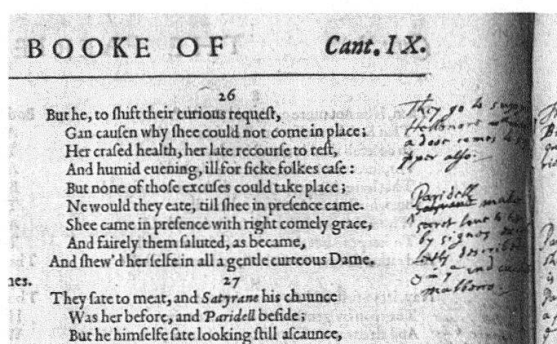 BOOKE OF Cant. IX.
26
But he, to ſhift their curious requeſt,
Gan cauſen why ſhee could not come in place;
Her craſed health, her late recourſe to reſt,
And humid euening, ill for ſicke folkes caſe:
But none of thoſe excuſes could take place;
Ne would they eate, till ſhee in preſence came.
Shee came in preſence with right comely grace,
And fairely them ſaluted, as became,
And ſhew'd her ſelfe in all a gentle curteous Dame.
nes.
27
They ſate to meat, and Satyrane his chaunce
Was her before, and Paridell beſide;
But he himſelfe ſate looking ſtill aſcaunce,
They go to supp
Hellenore
comes to
pper also.
Paridell
Satyrane make
secret love to
by signes